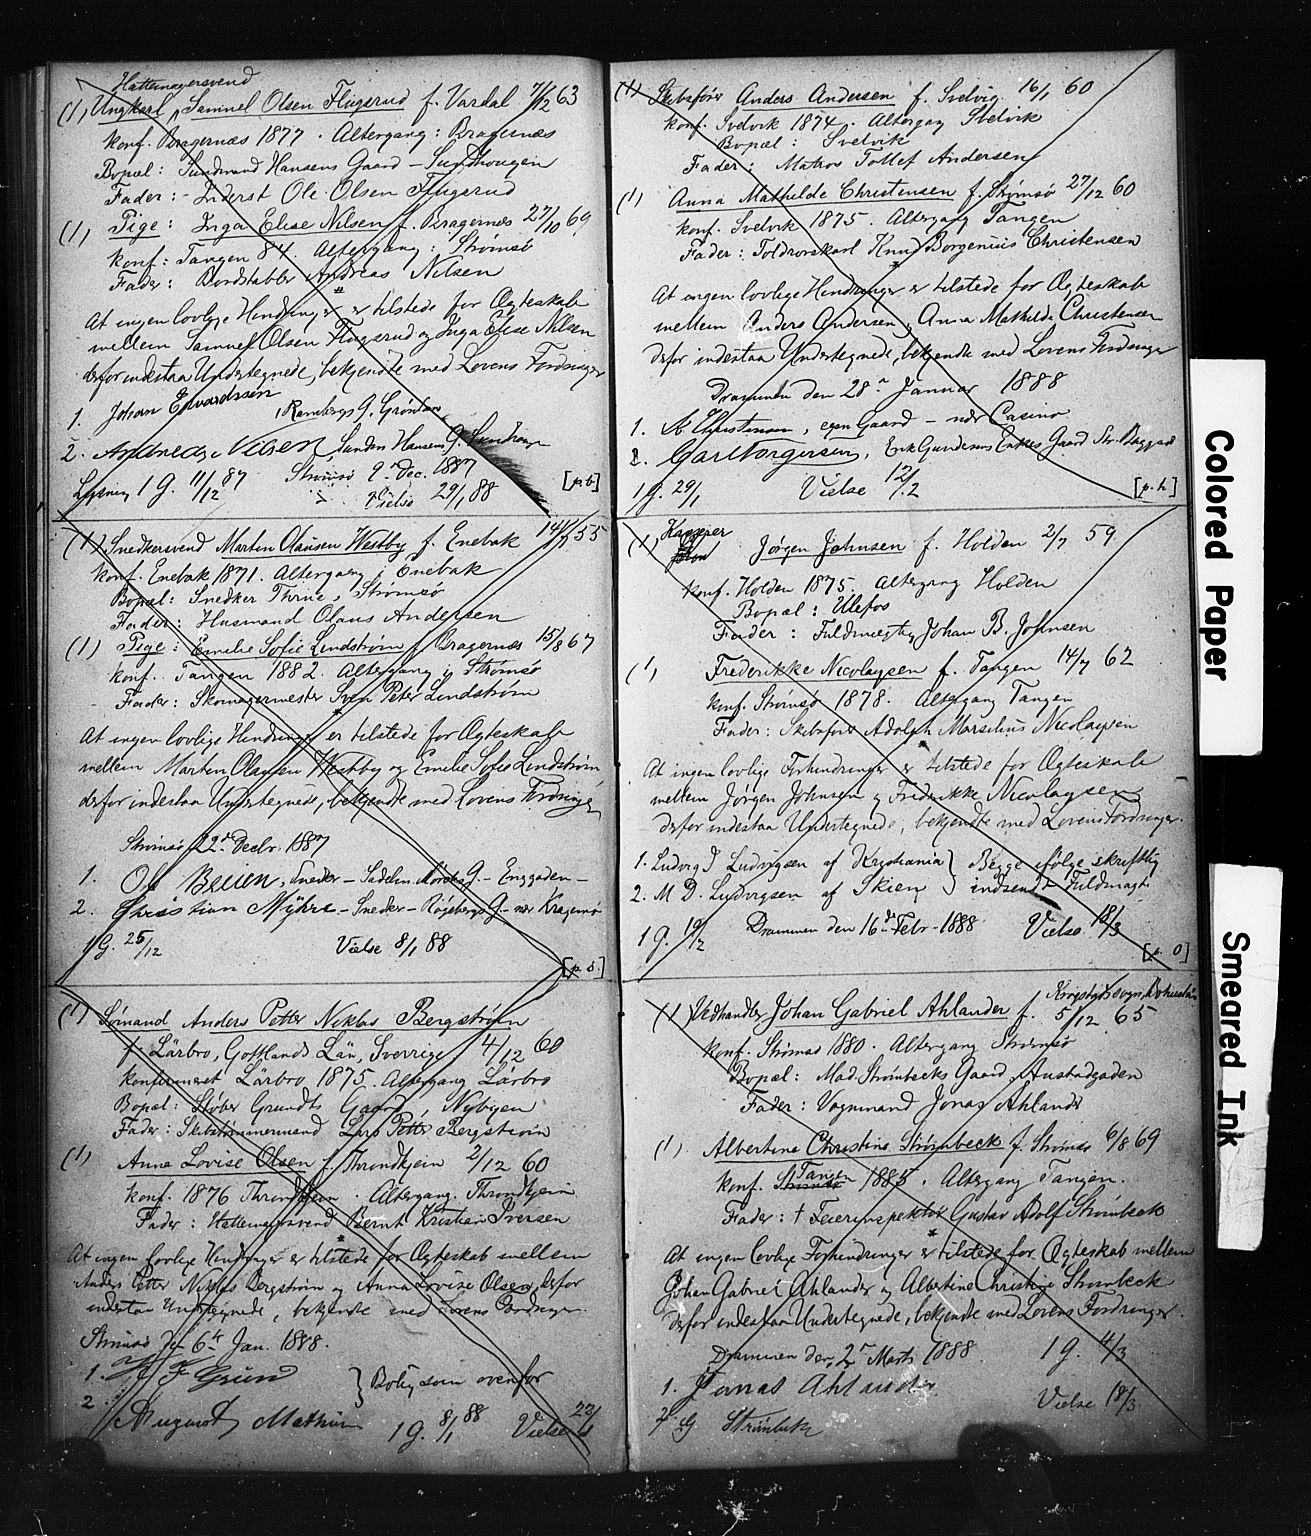 Hattemagersvend
(1) Ungkarl, Samuel Olsen Flugerud f. Vardal 7/12 63
konf. Bragernæs 1877. Altergang: Bragernæs
Bopæl: Sundmand Hansens Gaard – Sundhougen
Fader: - Inderst Ole Olsen Flugerud
(1) Pige: Inga Elise Nilsen f. Bragernæs 27/10 69
konf: Tangen 84. Altergang: Strømsø
Fader: Bordstabler Andreas Nilsen
At ingen lovlige Hindringer er tilstede for Ægteskab
mellem Samuel Olsen Flugerud og Inga Elise Nilsen
derfor indestaa Undertegnede, bekjendte med Lovens Fordringer
1. Johan Edvardssen, Rambergs G. Grønland
2. Andreas Nilsen, Hansens G.
Lysning 1 G. 11/12 87 Strømsø 9. Dec. 1887
Vielse 29/1 88
(1) Snedkersvend Martin Olausen Westby f. Enebak 14/7 55
konf. Enebak 1871. Altergang i Enebak
Bopæl: Snedker Thrue, Strømsø
Fader: Husmand Olaus Andersen
(1) Pige: Emilie Sofie Lindstrøm f. Bragernæs 15/8 67
konf. Tangen 1882. Altergang i Strømsø
Fader: Skomagermester Sven Peter Lindstrøm
At ingen lovlige Hindringer er tilstede for Ægteskab
mellem Martin Olausen Westby og Emilie Sofie Lindstrøm
derfor indestaa Undertegnede, bekjendte med Lovens Fordringer
Strømsø 22. Decbr. 1887
1. Ole Breien, Sneker – Sadelm. G. – Enggaden –
2. Christian Myhre – Sneker – Røgebergs G. – nær
1 G. 25/12 Vielse 8/1 88
[p. s.]
(1) Sømand Anders Petter Niklas Bergstrøm
f. Lärbro, Gottlands Län, Sverrige 4/12 60
konfirmeret Lärbro 1875. Altergang Lärbro
Bopæl: Støber Grundts Gaard, Nybyen
Fader: Skibstømmermand Lars Petter Bergstrøm
(1) Anna Lovise Olsen f. Throndhjem 2/12 60
konf. 1876 Throndhjem. Altergang. Throndhjem
Fader: Hattemagersvend Bernt Kristian Iversen
At ingen lovlige Hindringer er tilstede for Ægteskab mellem
Anders Petter Niklas Bergstrøm og Anna Lovise Olsen, derfor
indestaa Undertegnede, bekjendte med Lovens Fordringer.
Strømsø den 6te Jan. 1888.
1. F Gruen
2. August Mathisen
Bolig som ovenfor
1 G. 8/1 88 Vielse
(1) Skibsfører Anders Andersen f. Svelvig 16/1 60
konf. Svelvik 1874. Altergang Svelvik
Bopæl: Svelvik
Fader: Matros Tollef Andersen
(1) Anna Mathilde Christensen f. Strømsø 27/12 60
konf. Svelvik 1875. Altergang Tangen
Fader: Toldrorskarl Knud Borgenius Christensen
At ingen lovlige Hindringer er tilstede for Ægteskab
mellem Anders Andersen og Anna Mathilde Christensen
derfor indestaa Undertegnede, bekjendte med Lovens Fordringer
Drammen den 28. Januar 1888
1. Christensen, egen Gaard – nær Casino
2. Carl Torgersen, Enke Gundersens Enkes Gaard Str.
1 G. 29/1 Vielse 12/2
(1) Kasserer Jørgen Johnsen f. Holden 2/7 59
konf. Holden 1875. Altergang Holden
Bopæl: Ulefos
Fader: Fuldmægtig Johan B. Johnsen
(1) Frederikke Nicolaysen f. Tangen 14/7 62
konf. Strømsø 1878. Altergang Tangen
Fader: Skibsfører Adolph Marselius Nicolaysen
At ingen lovlige Forhindringer er tilstede for Ægteskab
mellem Jørgen Johnsen og Fredrikke Nicolaysen
derfor indestaa Undertegnede, bekjendte med Lovens Fordringer.
1. Ludvig I Ludvigsen af Kristiania
2. M D. Ludvigsen af Skien
Begge ifølge skriftlig
indsendt Fuldmagt
1 G. 19/2 Drammen den 16de Febr. 1888 Vielse 18/3
(1) Vedhandler Johan Gabriel Ahlander f. 5/12 65
konf. Strømsø 1880. Altergang Strømsø
Bopæl: Mad. Strømbecks Gaard, Austadgaden
Fader: Vognmand Jonas Ahlander
(1) Albertine Christine Strømbeck f. Strømsø 6/8 69
konf. Strømsø Tangen 1885. Altergang Tangen.
Fader: † Feierinspektør Gustav Adolf Strømbeck
At ingen lovlige Forhindringer er tilstede for Ægteskab mellem
Johan Gabriel Ahlander og Albertine Christine Strømbeck
derfor indestaa Undertegnede, bekjendte med Lovens Fordringer.
Drammen den 2. Marts 1888 1 G. 4/3
1. Jonas Ahlander Vielse 18/3
2. G Strømbeck
Colored Paper
Smeared Ink